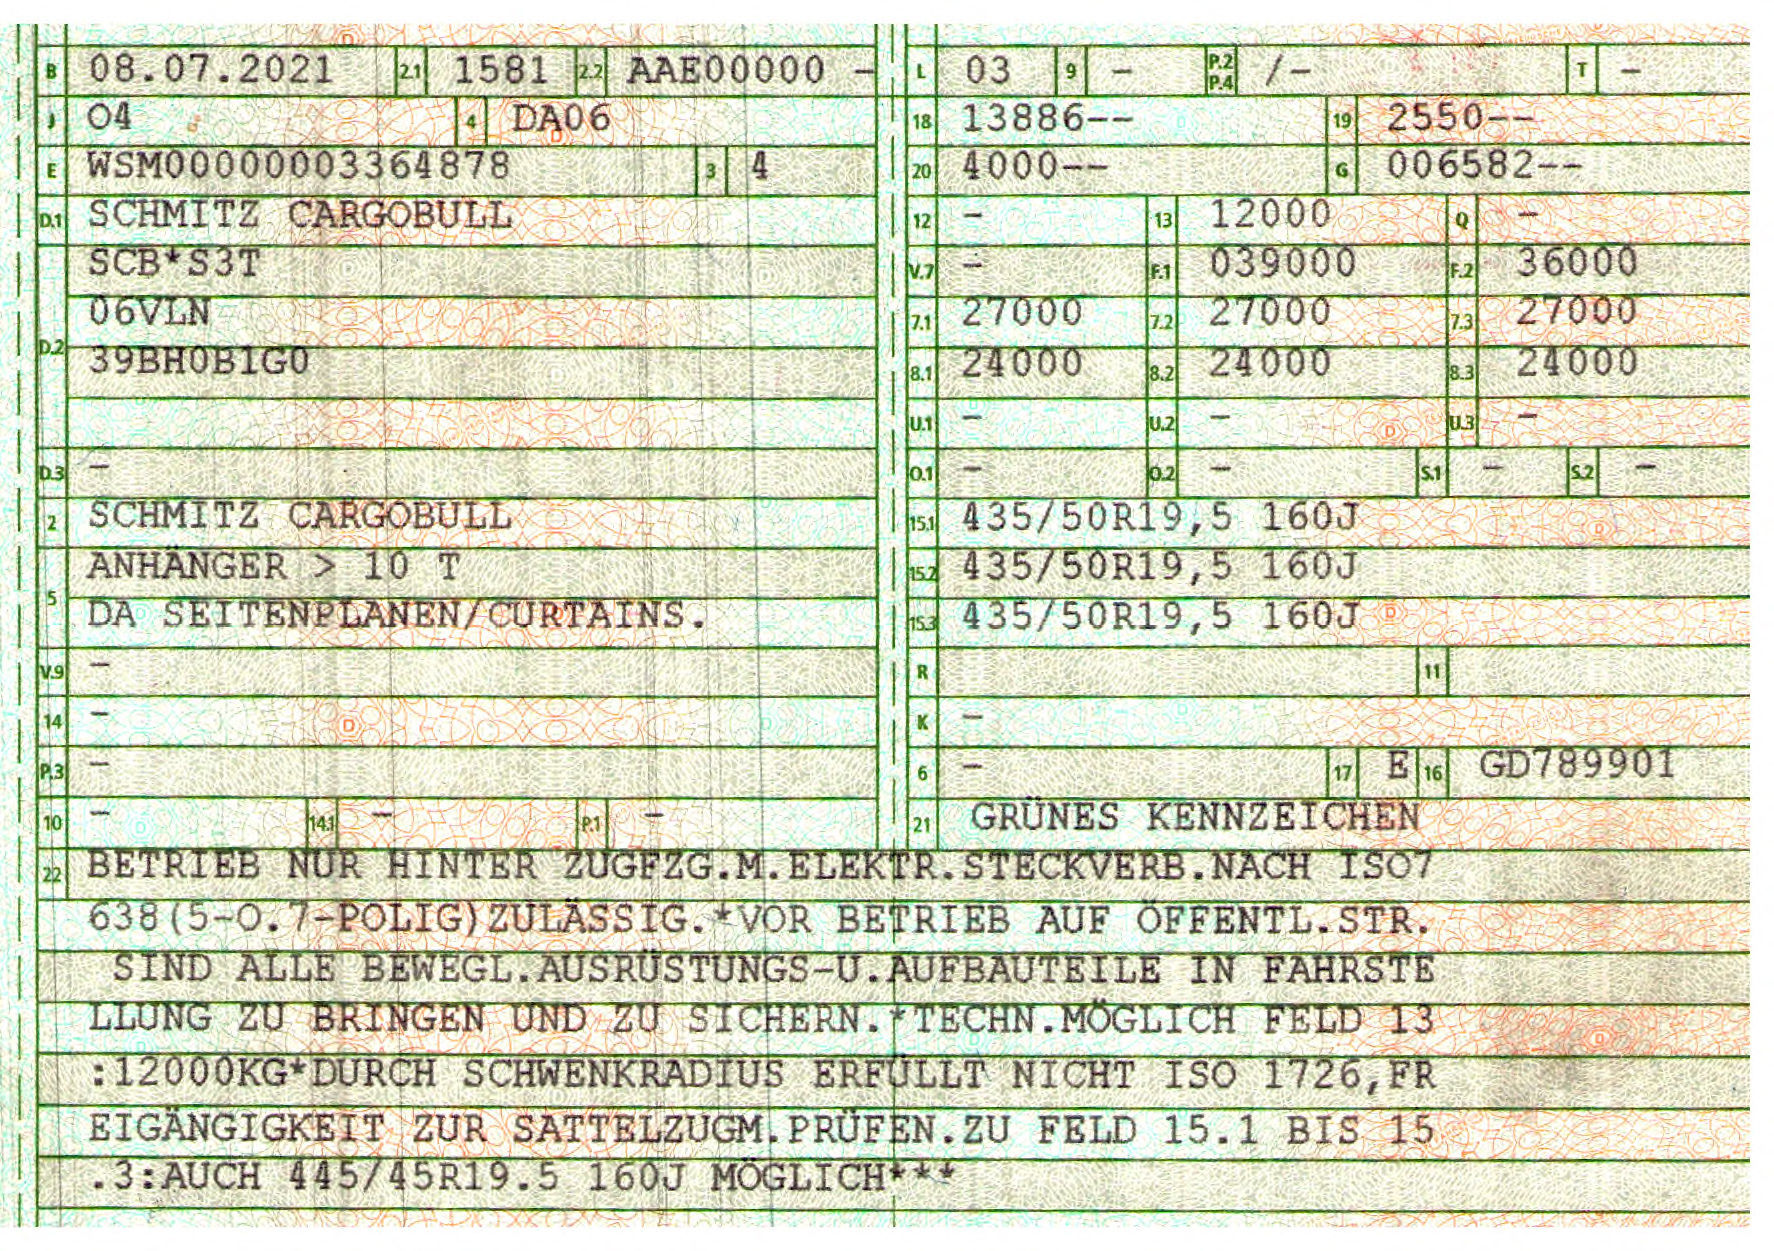 B 08.07.2021 2.1 1581 2.2 AAE00000 -
J O4 4 DA06
E WSM00000003364878 3 4
D.1 SCHMITZ CARGOBULL
SCB*S3T
06VLN
D.2 39BH0B1G0
D.3 -
2 SCHMITZ CARGOBULL
ANHÄNGER > 10 T
5 DA SEITENPLANEN/CURTAINS.
V.9 -
14 -
P.3 -
10 - 14.1 - P.1 -
L 03 9 - P.2 P.4 /- T -
18 13886-- 19 2550--
20 4000-- G 006582--
12 - 13 12000 Q -
V.7 - F.1 039000 F.2 36000
7.1 27000 7.2 27000 7.3 27000
8.1 24000 8.2 24000 8.3 24000
U.1 - U.2 - U.3 -
O.1 - O.2 - S.1 - S.2 -
15.1 435/50R19,5 160J
15.2 435/50R19,5 160J
15.3 435/50R19,5 160J
R 11
K -
6 - 17 E 16 GD789901
21 GRÜNES KENNZEICHEN
22 BETRIEB NUR HINTER ZUGFZG.M.ELEKTR.STECKVERB.NACH ISO7
638(5-O.7-POLIG)ZULÄSSIG.*VOR BETRIEB AUF ÖFFENTL.STR.
SIND ALLE BEWEGL.AUSRÜSTUNGS-U.AUFBAUTEILE IN FAHRSTE
LLUNG ZU BRINGEN UND ZU SICHERN.*TECHN.MÖGLICH FELD 13
:12000KG*DURCH SCHWENKRADIUS ERFÜLLT NICHT ISO 1726,FR
EIGÄNGIGKEIT ZUR SATTELZUGM.PRÜFEN.ZU FELD 15.1 BIS 15
.3:AUCH 445/45R19.5 160J MÖGLICH***